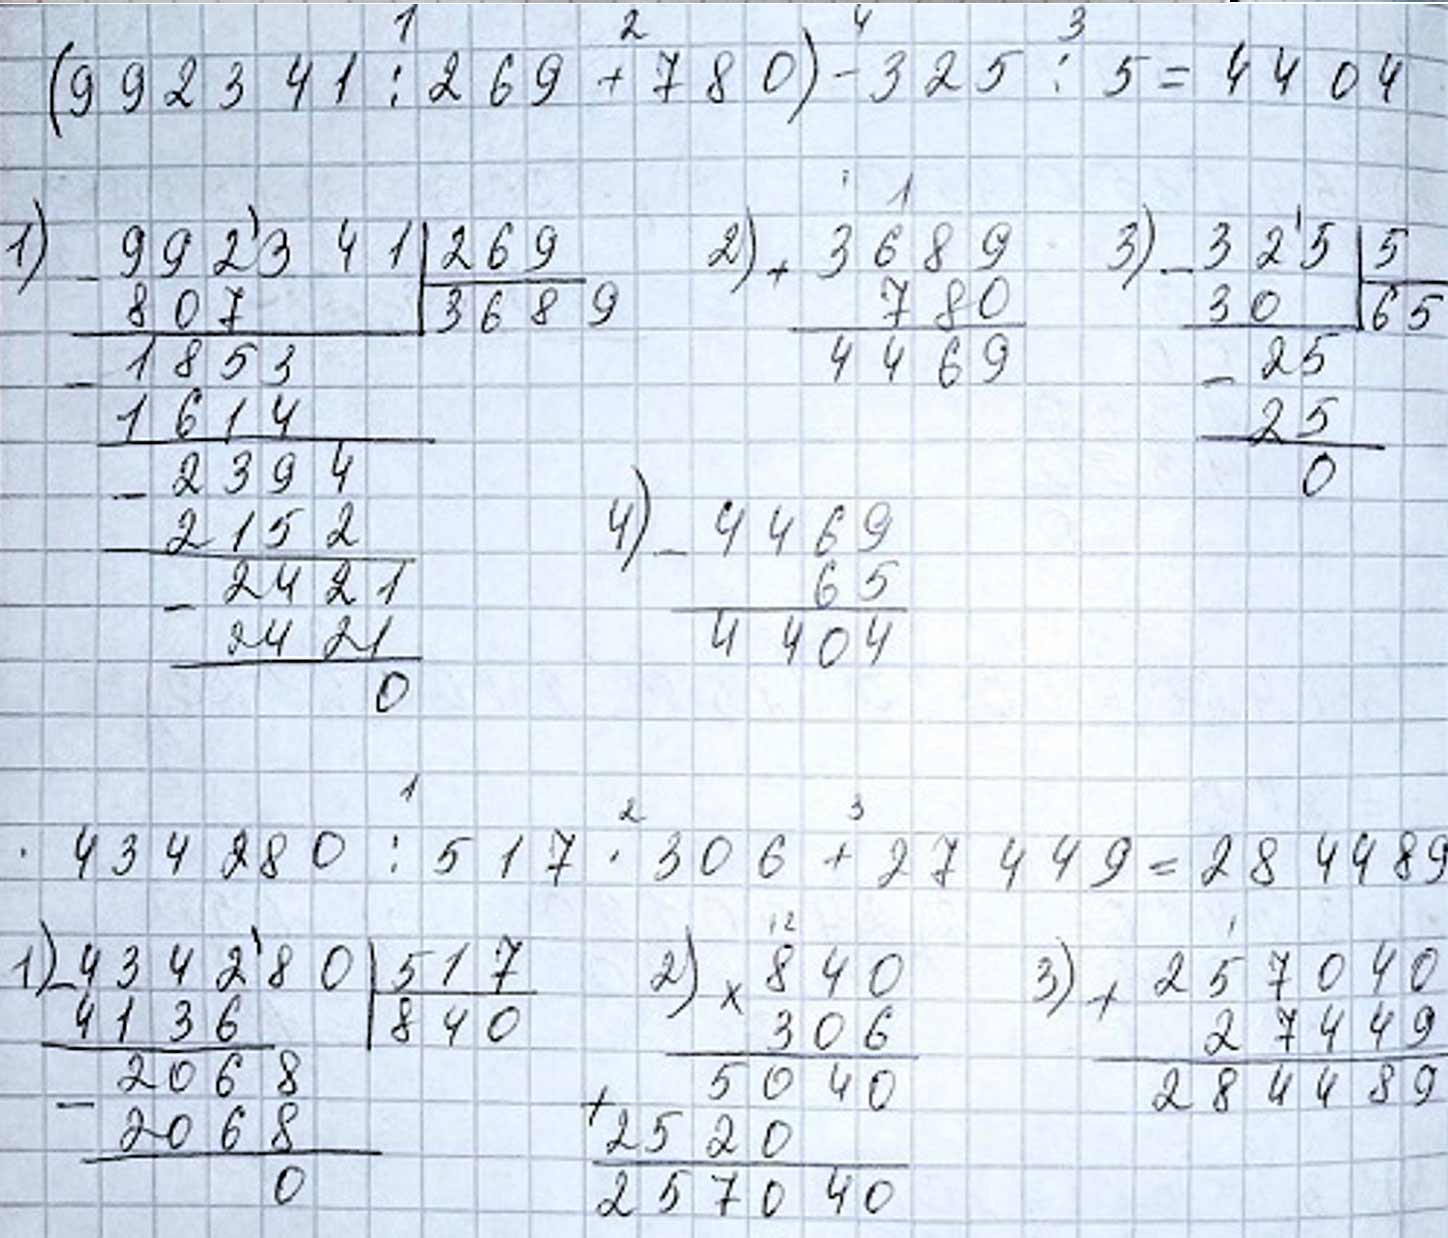 1 2 4 3
(992341 : 269 + 780) - 325 : 5 = 4404
1) - 992'341 | 269
807 | 3689
- 1853
1614
- 2394
2152
- 2421
2421
0
1
2) + 3689
780
4469
3) - 32'5 | 5
30 | 65
- 25
25
0
4) - 4469
65
4404
1 2 3
434280 : 517 · 306 + 27449 = 284489
1) - 4342'80 | 517
4136 | 840
- 2068
2068
0
12
2) x 840
306
5040
+ 2520
257040
1
3) + 257040
27449
284489